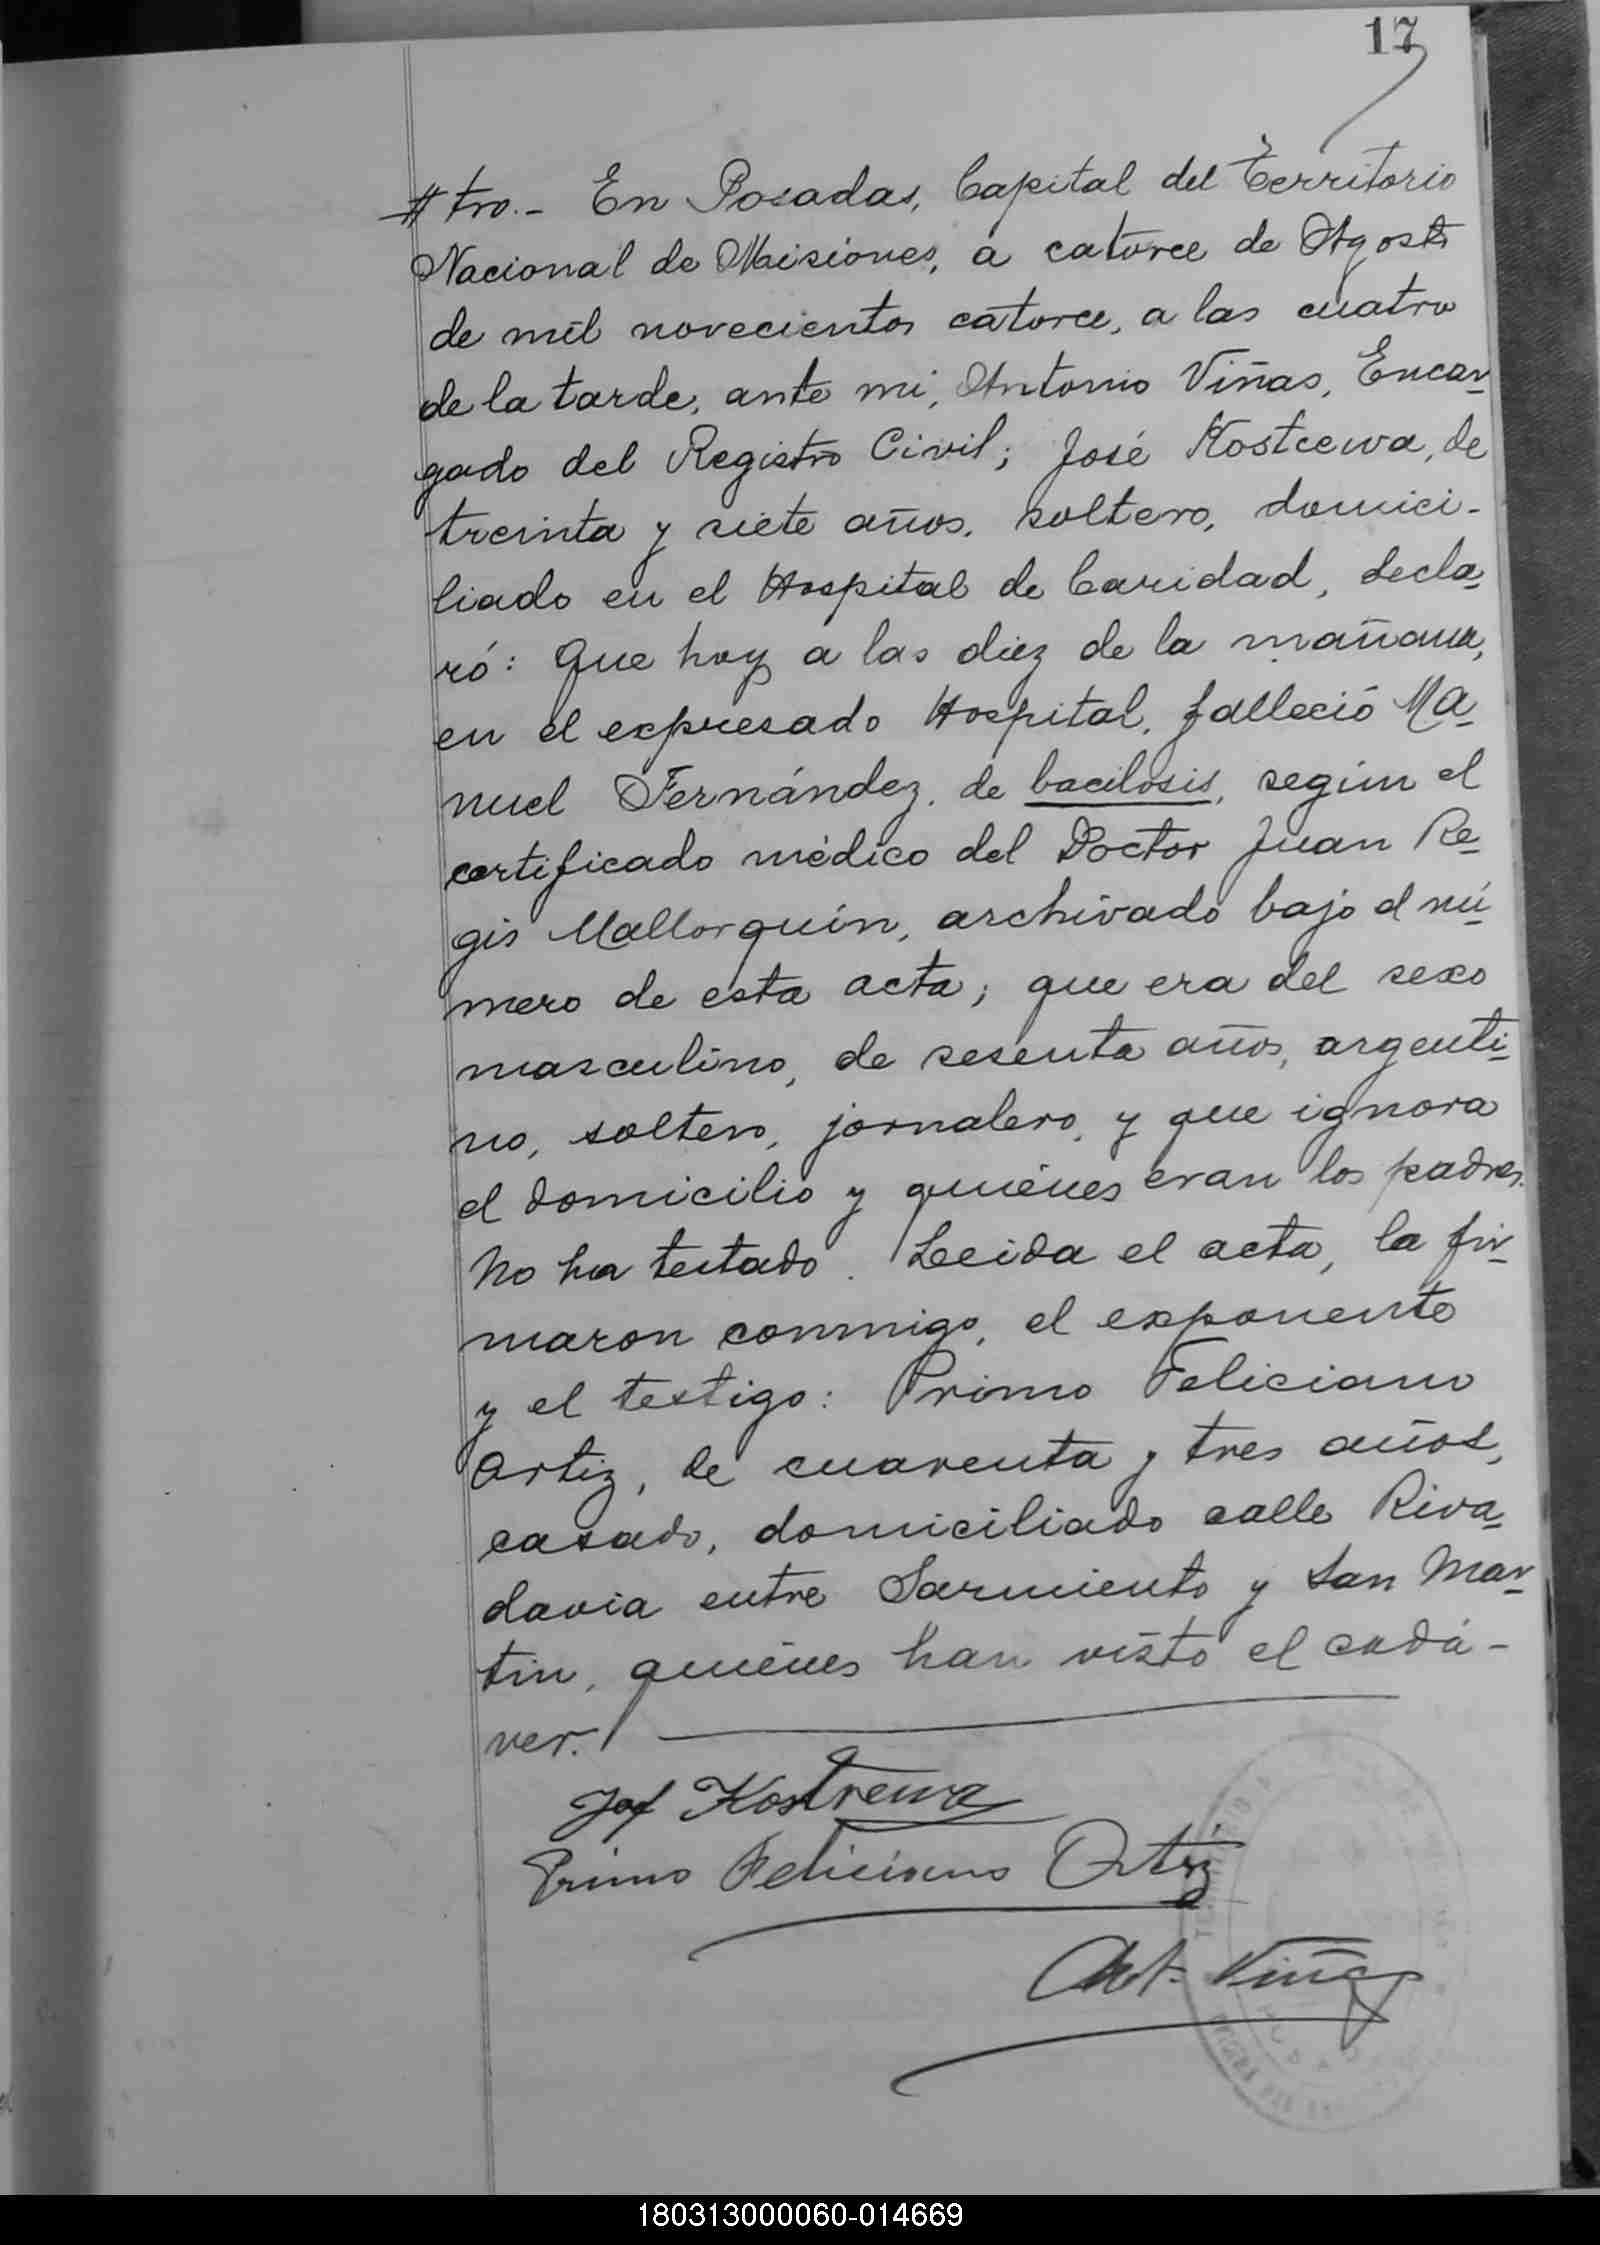 17
# tro.- En Posadas, Capital del Territorio
Nacional de Misiones, a catorce de Agosto
de mil novecientos catorce, a las cuatro
de la tarde, ante mi, Antonio Viñas, Encar-
gado del Registro Civil; José Kostcewa, de
treinta y siete años, soltero, domici-
liado en el Hospital de Caridad, decla-
ró: Que hoy a las diez de la mañana,
en el expresado Hospital, falleció Ma-
nuel Fernández, de bacilosis, según el
certificado médico del Doctor Juan Re-
gis Mallorquín, archivado bajo el nú-
mero de esta acta; que era del sexo
masculino, de sesenta años, argenti-
no, soltero, jornalero, y que ignora
el domicilio y quiénes eran los padres.
No ha testado. Leida el acta, la fir-
maron conmigo, el exponente
y el testigo: Primo Feliciano
Ortiz, de cuarenta y tres años,
casado, domiciliado calle Riva-
davia entre Sarmiento y San Mar-
tin, quiénes han visto el cadá-
ver.
Jof Kostrewa
Primo Feliciano Ortiz
Ant. Viñas
180313000060-014669